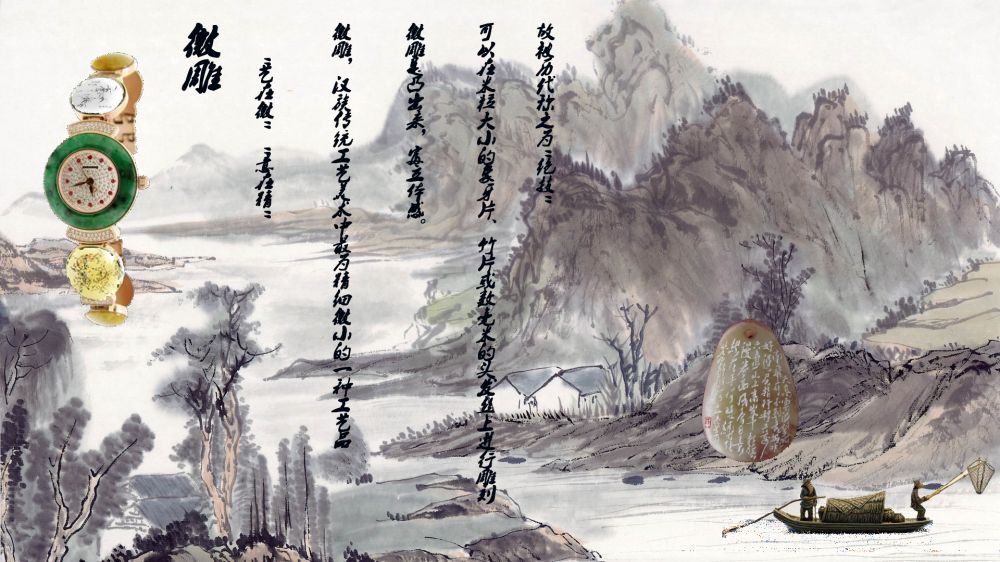 微雕
“艺在微” “意在精”
微雕，汉族传统工艺美术中最为精细微小的一种工艺品
微雕是凸出来，富立体感。
可以在米粒大小的象牙片、竹片或数毫米的头发丝上进行雕刻
故被历代称之为“绝技”